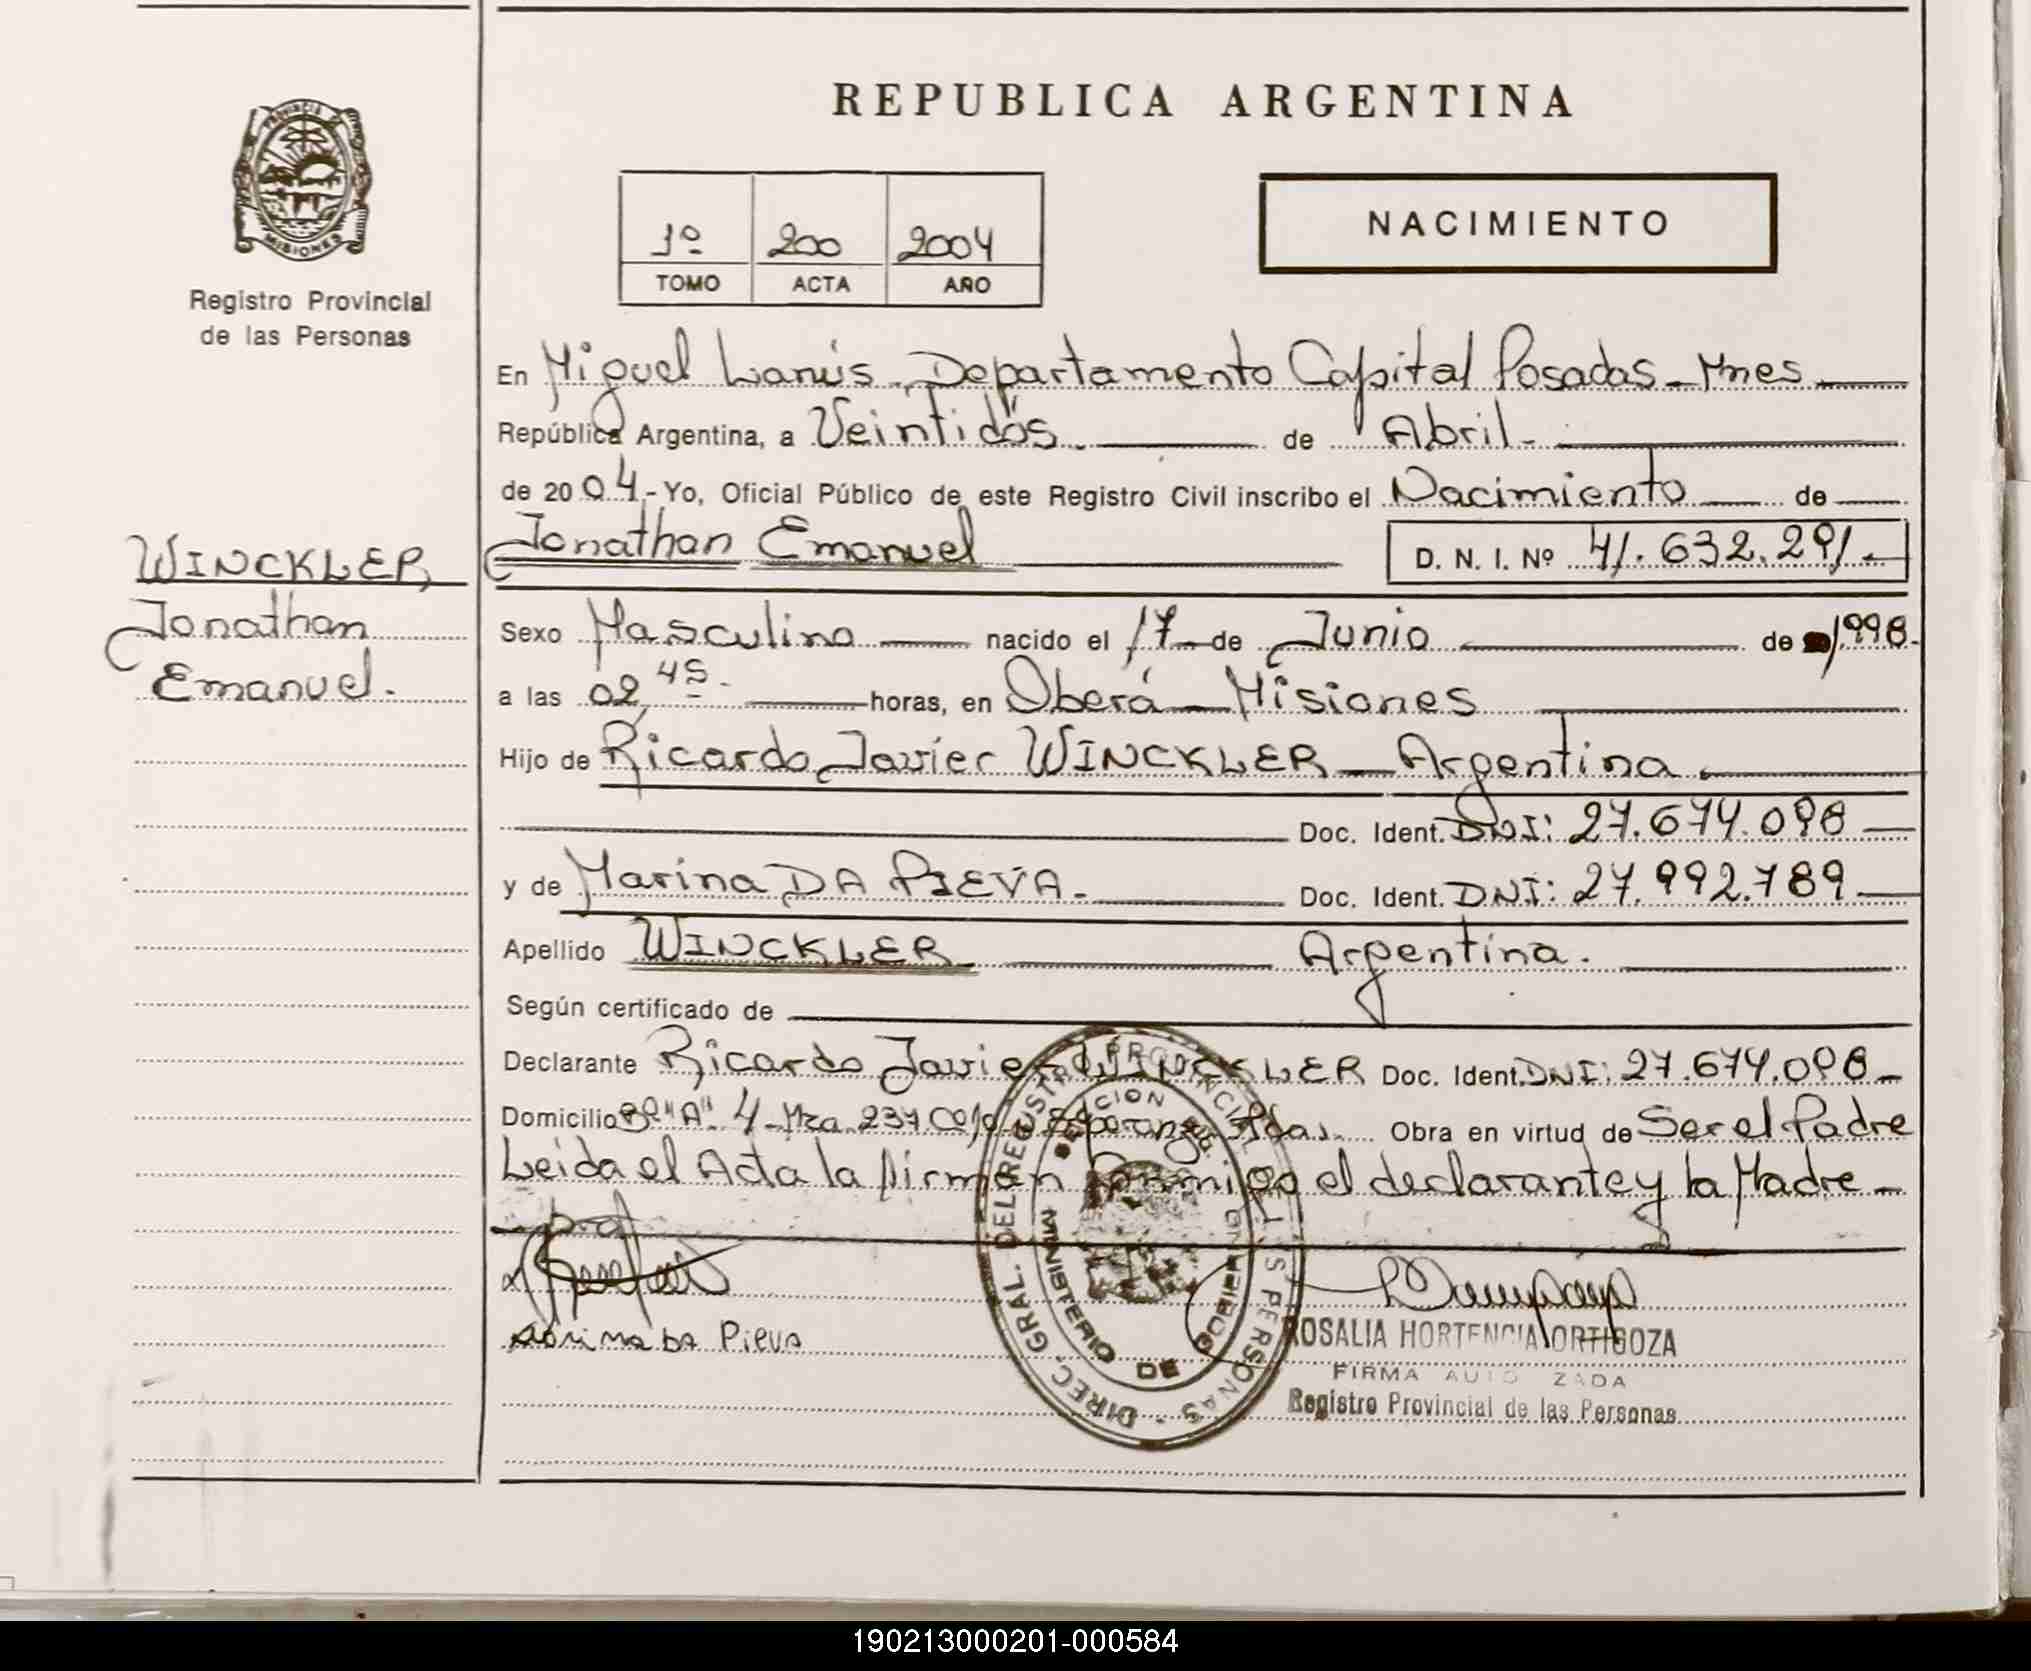 REPUBLICA ARGENTINA
PROVINCIA DE
MISIONES
Registro Provincial
de las Personas
1º 200 2004
TOMO ACTA AÑO
NACIMIENTO
En Miguel Lanús - Departamento Capital Posadas - Mnes
República Argentina, a Veintidós de Abril.
de 2004.- Yo, Oficial Público de este Registro Civil inscribo el Nacimiento de
WINCKLER
Jonathan
Emanuel.
Jonathan Emanuel D. N. I. Nº 41.632.291.-
Sexo Masculino nacido el 17 de Junio de 1998.
a las 02,45 horas, en Oberá - Misiones
Hijo de Ricardo Javier WINCKLER - Argentina
Doc. Ident. DNI: 27.674.098
y de Marina DA PIEVA. Doc. Ident. DNI: 27.992.789
Apellido WINCKLER Argentina.
Según certificado de
Declarante Ricardo Javier WINCKLER Doc. Ident. DNI: 27.674.098
Domicilio Bº "A" 4 - Mza 237 Esperanza Pdas. Obra en virtud de Ser el Padre
Leida el Acta la firman conmigo el declarante y la Madre -
DIREC. GRAL. DEL REGISTRO PROVINCIAL DE LAS PERSONAS
MINISTERIO DE GOBIERNO
Da Pieva
ROSALIA HORTENCIA ORTIGOZA
FIRMA AUTORIZADA
Registro Provincial de las Personas
190213000201-000584